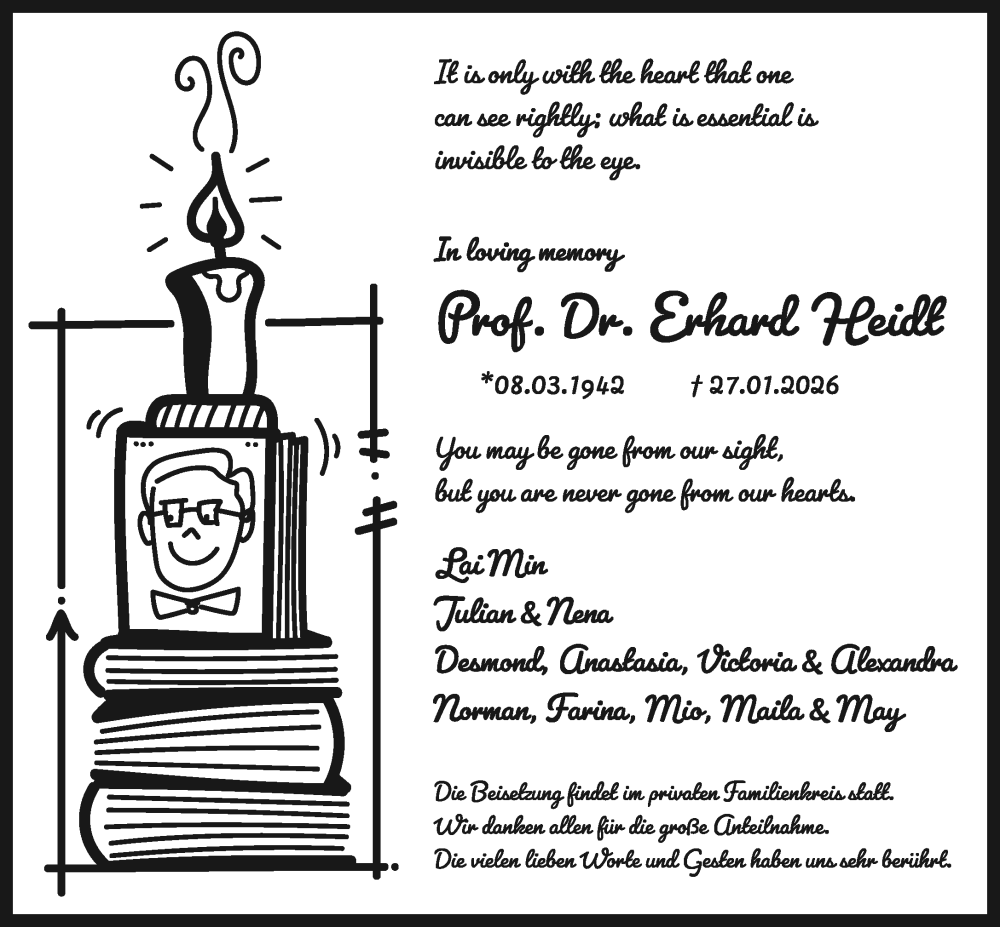 It is only with the heart that one
can see rightly; what is essential is
invisible to the eye.
In loving memory
Prof. Dr. Erhard Heidt
*08.03.1942 † 27.01.2026
You may be gone from our sight,
but you are never gone from our hearts.
Lai Min
Julian & Nena
Desmond, Anastasia, Victoria & Alexandra
Norman, Farina, Mio, Maila & May
Die Beisetzung findet im privaten Familienkreis statt.
Wir danken allen für die große Anteilnahme.
Die vielen lieben Worte und Gesten haben uns sehr berührt.